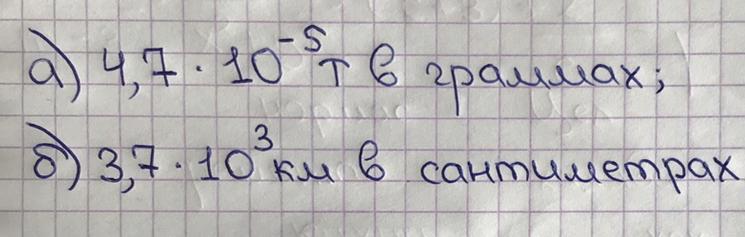 а) 4,7 · 10⁻⁵ т в граммах;
б) 3,7 · 10³ км в сантиметрах